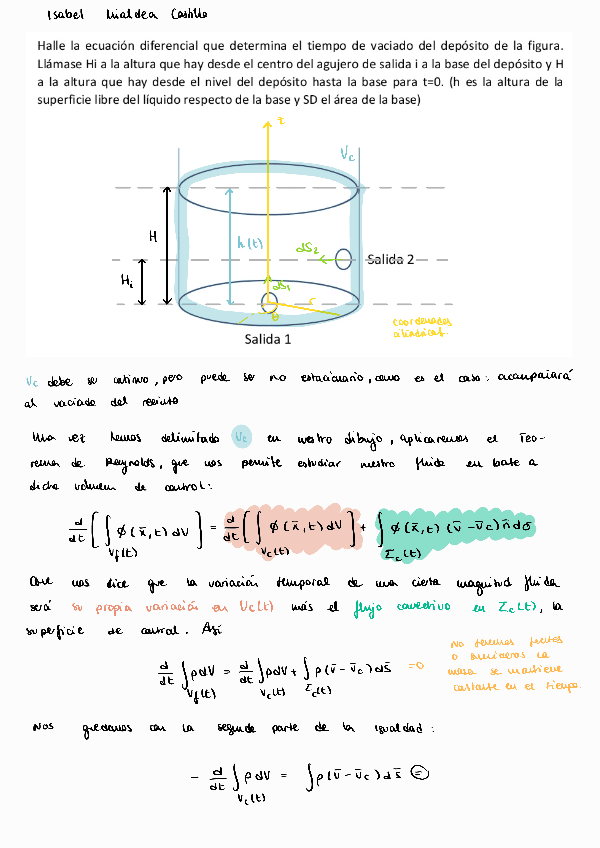 Isabel Lialdea Castillo
Halle la ecuación diferencial que determina el tiempo de vaciado del depósito de la figura.
Llámase Hi a la altura que hay desde el centro del agujero de salida i a la base del depósito y H
a la altura que hay desde el nivel del depósito hasta la base para t=0. (h es la altura de la
superficie libre del líquido respecto de la base y SD el área de la base)
z
Vc
H
h(t)
dS₂
Salida 2
Hi
dS₁
r
θ
coordenadas
cilíndricas
Salida 1
Vc debe ser continuo, pero puede ser no estacionario, como es el caso: acompañará
al vaciado del recinto
Una vez hemos delimitado Vc en nuestro dibujo, aplicaremos el Teo-
rema de Reynolds, que nos permite estudiar nuestro fluido en base a
dicho volumen de control:
d/dt [∫_{Vf(t)} φ(x̄,t) dV] = d/dt [∫_{Vc(t)} φ(x̄,t) dV] + ∫_{Σc(t)} φ(x̄,t) (v̄ - v̄c) n̄ dσ
Que nos dice que la variación temporal de una cierta magnitud fluida
será su propia variación en Vc(t) más el flujo convectivo en Σc(t), la
superficie de control. Así
d/dt ∫_{Vf(t)} ρ dV = d/dt ∫_{Vc(t)} ρ dV + ∫_{Σc(t)} ρ(v̄ - v̄c) ds̄ = 0
No tenemos fuentes
o sumideros la
masa se mantiene
constante en el tiempo
Nos quedamos con la segunda parte de la igualdad:
- d/dt ∫_{Vc(t)} ρ dV = ∫ ρ(v̄ - v̄c) ds̄ =